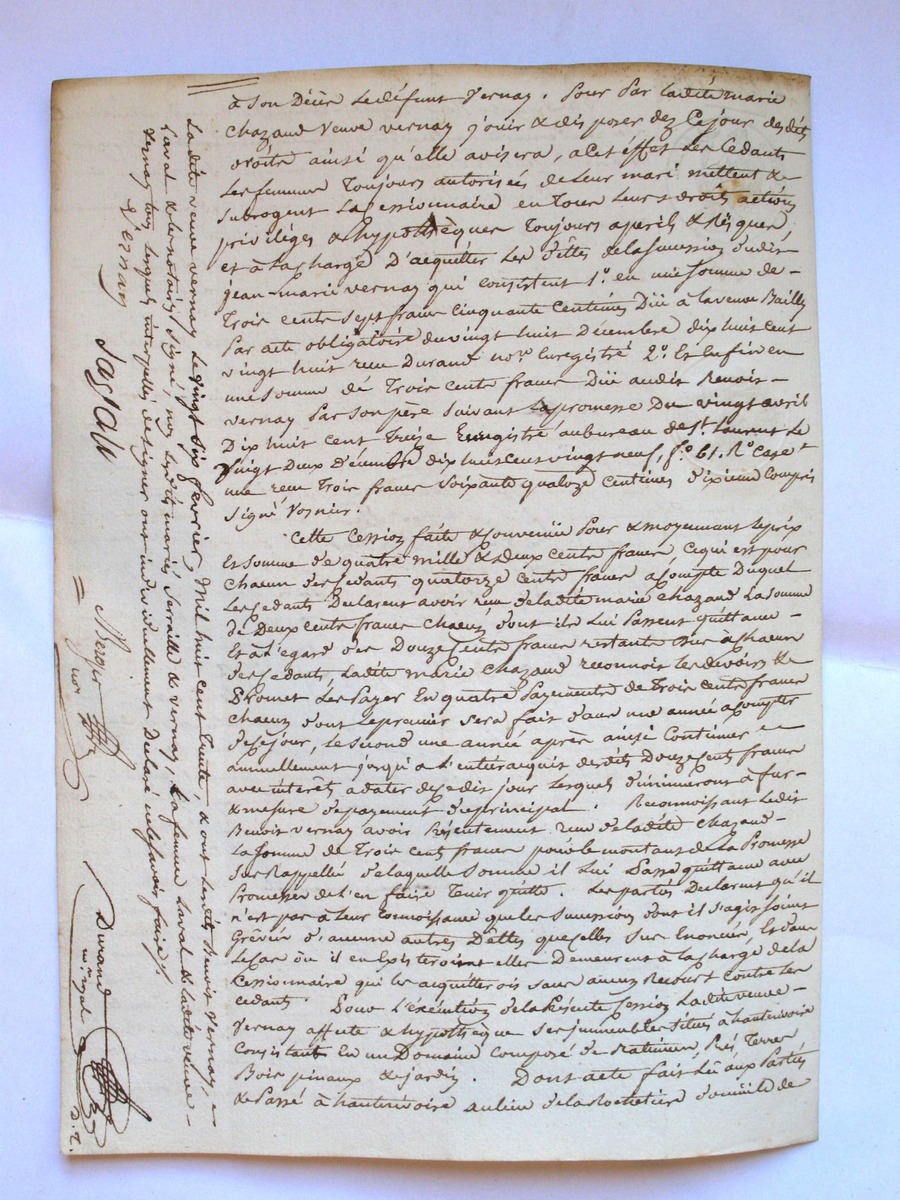 à son Décès Ledéfunt Vernay. Pour Par ladite marie
Chazand Veuve vernay jouir & disposer dez Cejour desdts
droits ainsi qu'elle avisera, acet éffet Les Cedants
Les femmes Toujours autorisées de Leur mari mettent &
subrogent La Cessionnaire en Tous Leurs droits actions
priviléges & hypothèques Toujours aperil & risques
et à la charge D'acquitter Les déttes dela succession dudit
jean-marie vernay qui consistent 1o. en une somme de -
Trois cents sept francs Cinquante Centimes Dûe à la veuve Bailly
Par acte obligatoire du vingt huit Décembre dix huit cent
vingt huit reçu Durand nore. Enregistré 2o. Et Enfin en
une somme de Trois cents francs Düe audit Benoit -
vernay Par son père suivant la promesse Du vingt avril
Dix huit cent Treize Enregistré au bureau de St. Laurent Le
vingt Deux Décembre dix huit cent vingt neuf, fo. 61. Ro. case
une reçu Trois francs soixante quatorze centimes dixieme Compris
signé Vosnier.
Cette Cession faite & convenüe Pour & moyennant le prix
Et somme de quatre mille & deux cents francs Ce qui est pour
chacun des Cedants quatorze cents francs acompte Duquel
Les Cedants Declarent avoir reçu de ladite marie Chazand La somme
de Deux cents francs chacun dont ils Lui Passent quittance -
Et à L'égard des Douze cents francs restants Dus à chacun
des Cedants, Ladite marie Chazand reconnoit Les devoirs &
Promet Les Payer En quatre Payements de Trois cents francs
chacun dont Le premier sera fait dans une année acompter
de ce jour, Le second une année après ainsi Continuer
annuellement jusqu'a L'entier acquit desdits Douze cents francs
avec intérêts adater de ce dit jour Lesquels diminueront à fur -
& mesure de payement de principal. Reconnoissant Ledit
Benoit vernay avoir Présentement reçu de ladite Chazand -
La somme de Trois cents francs pour le montant de La Promesse
sus Rappellée de laquelle somme il Lui Passe quittance avec
Promesse de l'en faire Tenir quitte. Les parties Declarent qu'il
n'est pas à Leur Connoissance que les successions dont il s'agit soient
Grévées d'aucune autres Dettes que celles sus Enoncées, Et dans
Le cas où il en Existeroient elles Demeurent à la charge de la
Cessionnaire qui les acquitterois sans aucun Recourt contre les
cedants. Pour L'éxécution de la Présente Cession Ladite veuve -
Vernay affecte & hypothèque ses immeubles situés à hauterivoire
Consistant En un Domaine composé de Batimens Prés Terres
Bois pinaux & jardin. Dont acte fait Lû aux Parties
& Passé à hauterivoire au lieu de la domicile de
La dite veuve vernay Le vingt six fevrier, Mil huit cent trente, & ont Lesdits Benoit Vernay, -
Laval & le notaire signé, non Lesdits mariés Serraille & vernay, La femme Laval & la dite veuve -
Vernay tous Lesquels interpellés de signer ont individuellement Declaré ne le savoir faire./.
Vernay
Durand
nre. royal
D.T.